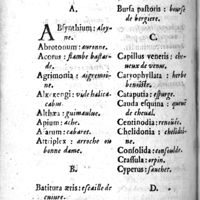 A.
ABsynthium: aluy-
ne.
Abrotonum: auronne.
Acorus: flambe bastar-
de.
Agrimonia: aigremoi-
ne.
Alxexengi: vulc halica-
cabus.
Althæa: guimaulue.
Apium: ache.
Azarum: cabaret.
Attriplex: arroche ou
bonne dame.
B.
Batitura æris: escaille de
cuiure.
Bursa pastoris: bourse
de bergiere.
C.
Capillus veneris: che-
ueux de venus.
Caryophyllata: herbe
benoiste.
Cataputia: espurge.
Cauda equina: queuë
de cheual.
Centinodia: renouée.
Chelidonia: chelidoi-
ne.
Consolida: consoulde.
Crassula: orpin.
Cyperus: souchet.
D.